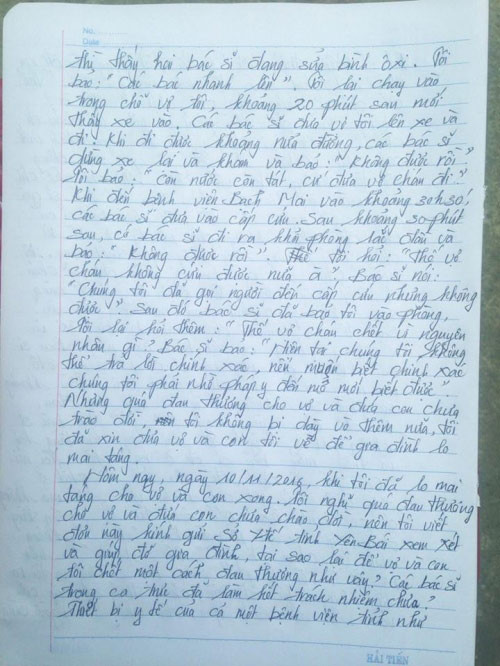 No.
Date
thì thấy hai bác sĩ đang sửa bình ôxi. Tôi
bảo: "Các bác nhanh lên". Tôi lại chạy vào
trong chỗ vợ tôi, khoảng 20 phút sau mới
thấy xe vào. Các bác sĩ đưa vợ tôi lên xe và
đi. Khi đi được khoảng nửa đường, các bác sĩ
dừng xe lại và khám và bảo: "Không được rồi".
Tôi bảo: "Còn nước còn tát, cứ đưa vợ cháu đi".
Khi đến bệnh viện Bạch Mai vào khoảng
các bác sĩ đưa vào cấp cứu. Sau khoảng 30 phút
sau, có bác sĩ đi ra khỏi phòng lắc đầu và
bảo: "Không được rồi". Tôi hỏi: "Thế vợ
cháu không cứu được nữa à". Bác sĩ nói:
"Chúng tôi đã gọi người đến cấp cứu nhưng không
được". Sau đó bác sĩ đã bảo tôi vào phòng,
tôi lại hỏi thêm: "Thế vợ cháu chết vì nguyên
nhân gì? Bác sĩ bảo: "Hiện tại chúng tôi không
thể trả lời chính xác, nếu muốn biết chính xác
chúng tôi phải nhờ pháp y đến mổ mới biết được".
Nhưng quá đau thương cho vợ và đứa con chưa
trào đời, nên tôi không bị dày vò thêm nữa, tôi
đã xin đưa vợ và con tôi về để gia đình lo
mai táng.
Hôm nay, ngày 10/11/2016, khi tôi đã lo mai
táng cho vợ và con xong. Tôi nghĩ quá đau thương
cho vợ và đứa con chưa chào đời, nên tôi viết
đơn này kính gửi Sở Y tế tỉnh Yên Bái xem xét
và giúp đỡ gia đình, tại sao lại để vợ và con
tôi chết một cách đau thương như vậy? Các bác sĩ
trong ca trực đã làm hết trách nhiệm chưa?
Thiết bị y tế của cả một bệnh viện tỉnh như
HẢI TIẾN